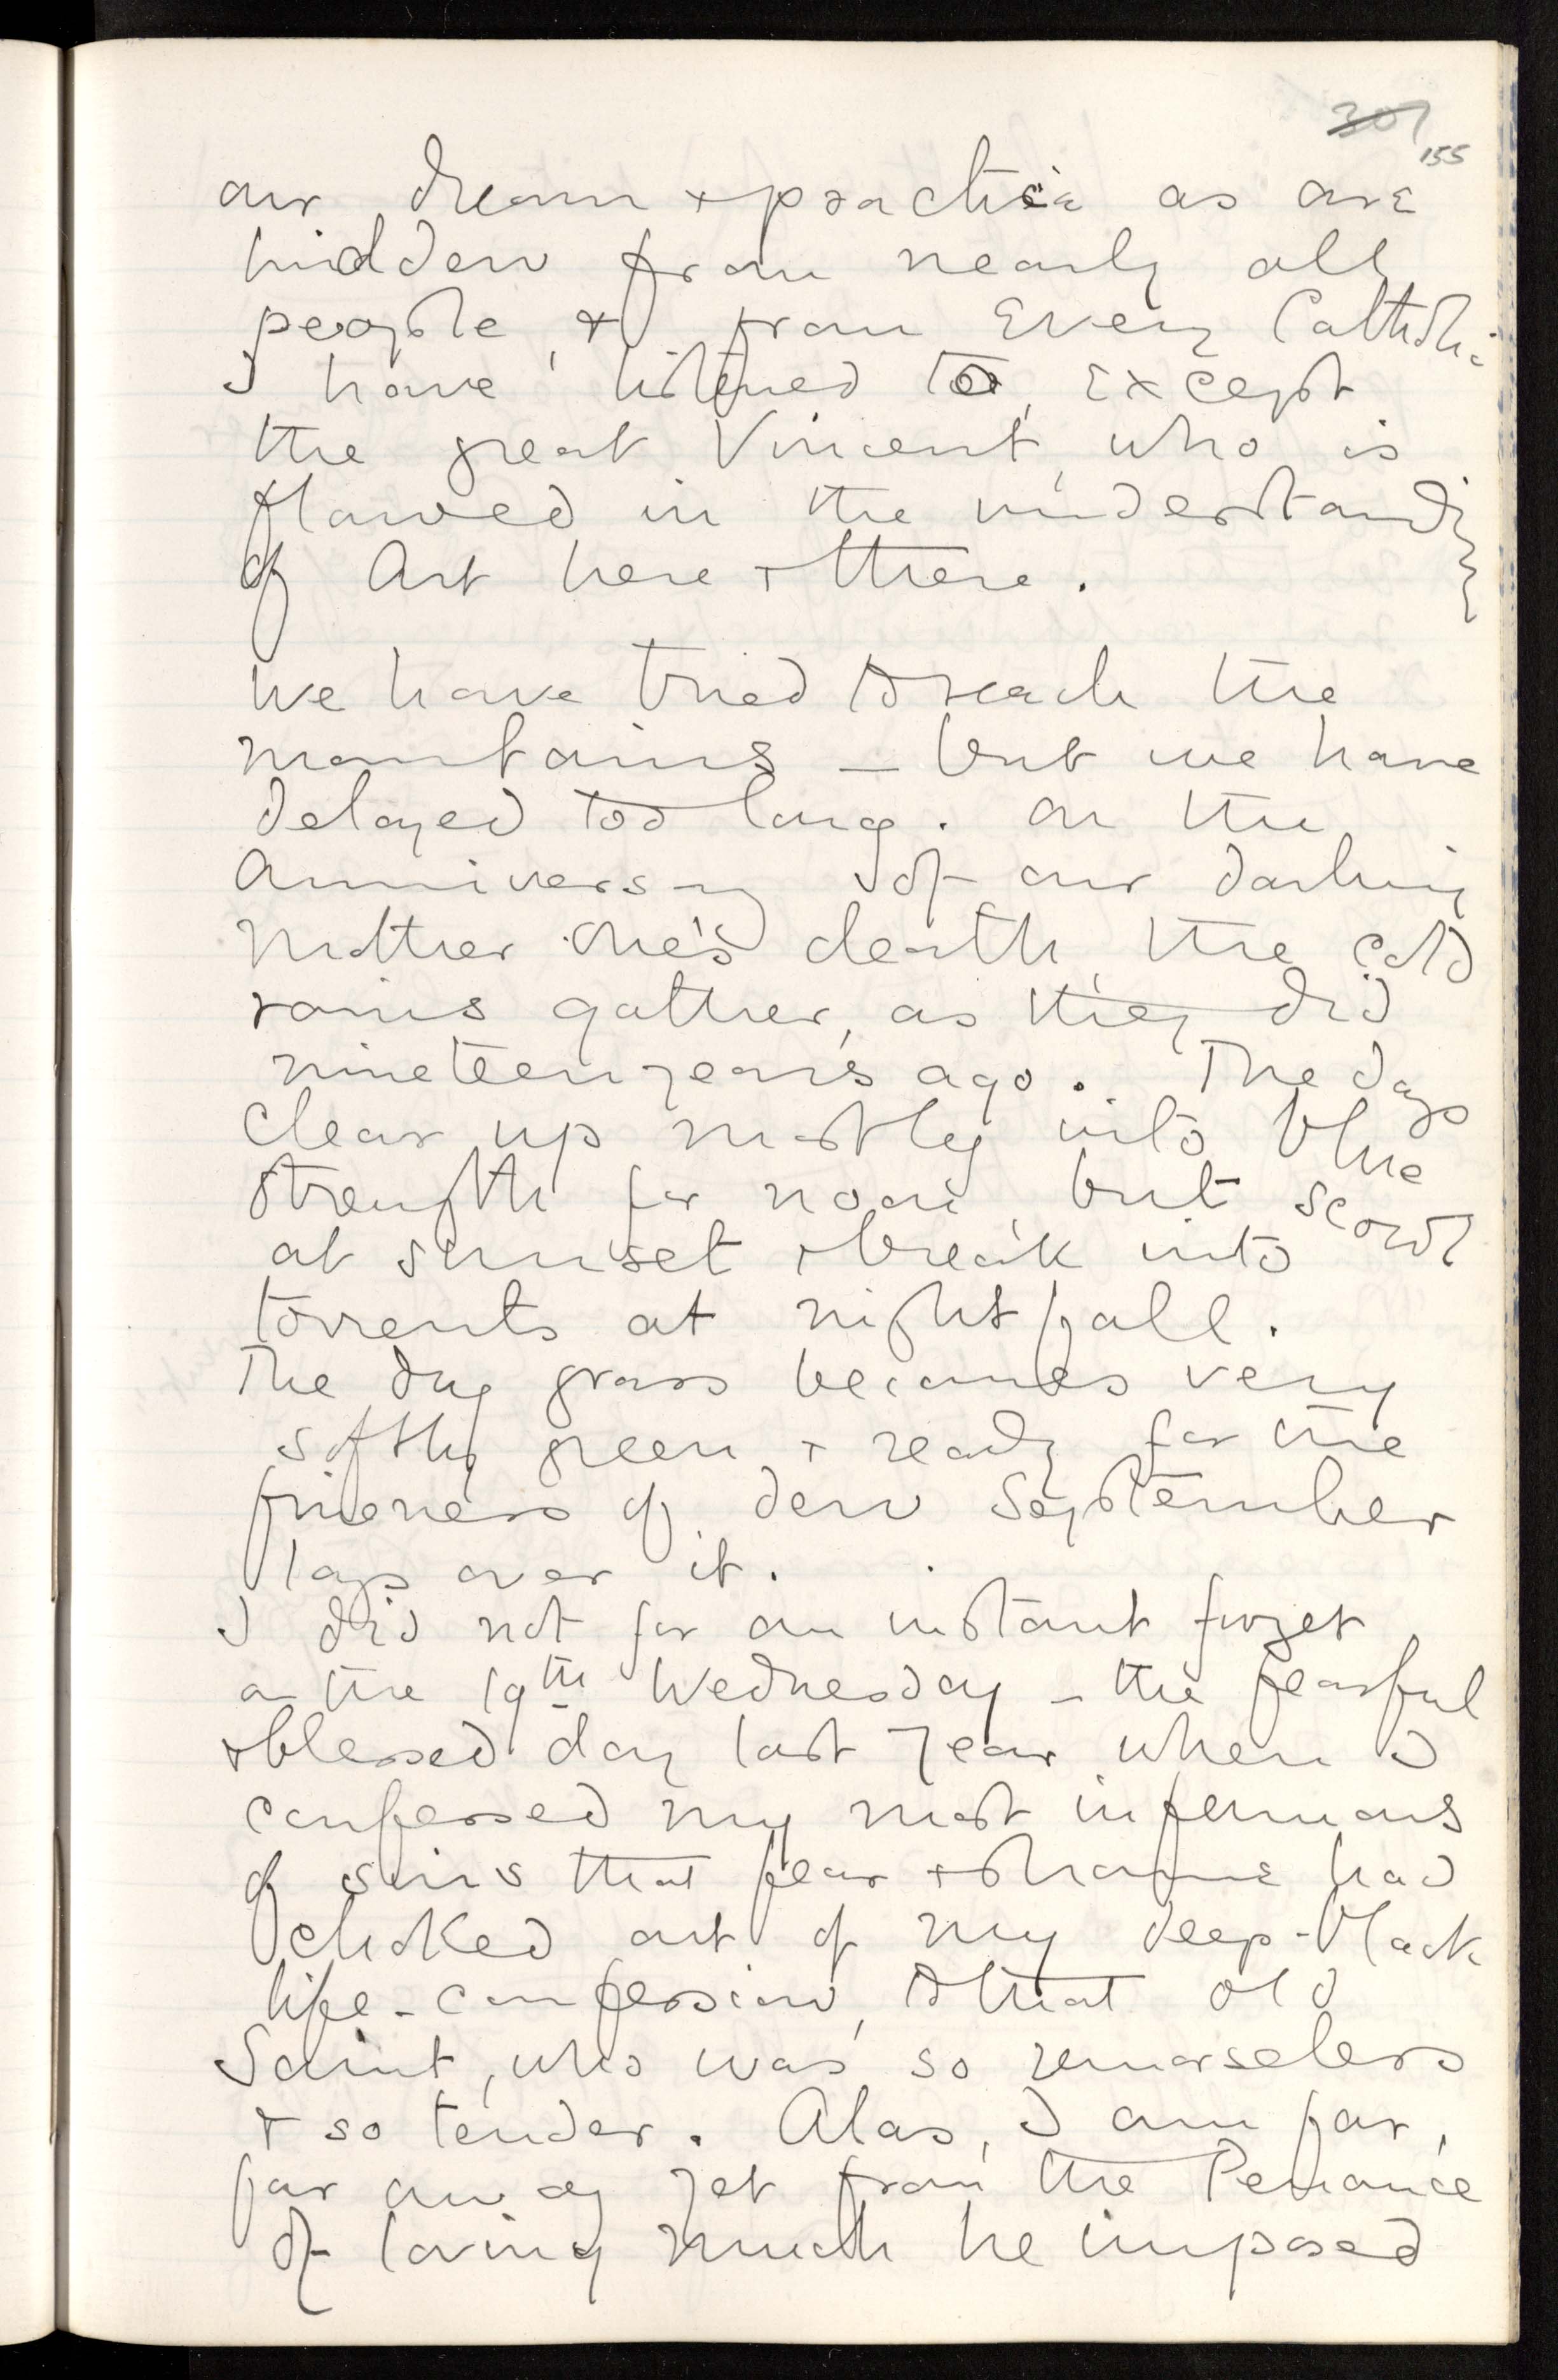 301
155
our dream & practice as are
hidden from nearly all
people, & from Every Catholic
I have listened to, except
the great Vincent, who is
flawed in the understanding
of Art here & there.
We have tried to reach the
mountains — but we have
delayed too long. On the
Anniversary of our darling
Mother One's death, the cold
rains gather, as they did
nineteen years ago. The days
clear up mostly into blue
strength for noon, but scowl
at sunset & break into
torrents at nightfall.
The dry grass becomes very
softly green, & ready for the
fineness of dew September
lays over it.
I did not for an instant forget
on the 19th Wednesday — the fearful
& blessed day last year when I
confessed my most infamous
of sins that fear & shame had
choked out of my deep-black
life-confession, to that old
Saint, who was so remorseless
& so tender. Alas, I am far,
far away yet from the Penance
of loving much he imposed